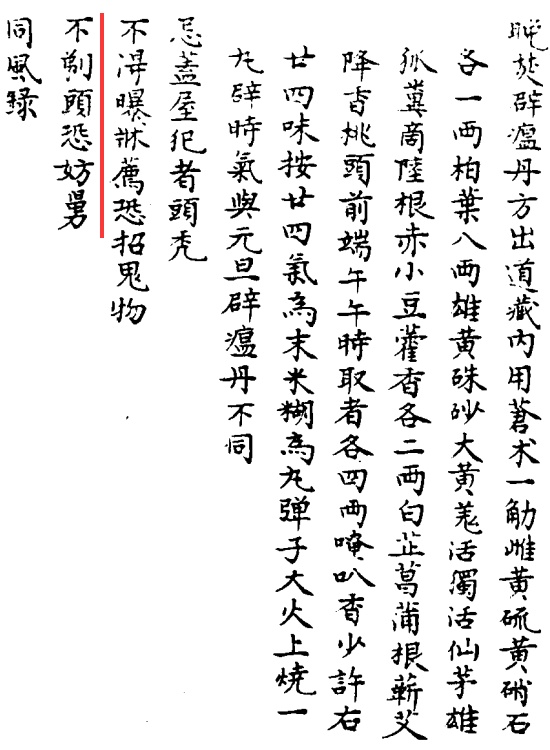 晚焚辟瘟丹方出道藏內用蒼术一觔雌黄硫黄硝石
各一两柏葉八两雄黄硃砂大黄羗活獨活仙茅雄
狐糞啇陸根赤小豆藿香各二两白芷菖蒲根蘄艾
降香桃頭前端午午時取者各四两唵叭香少許右
廿四味按廿四氣為末米糊為丸弹子大火上燒一
丸辟時氣與元旦辟瘟丹不同
忌蓋屋犯者頭禿
不淂曝牀薦恐招鬼物
不剃頭恐妨舅
同風録